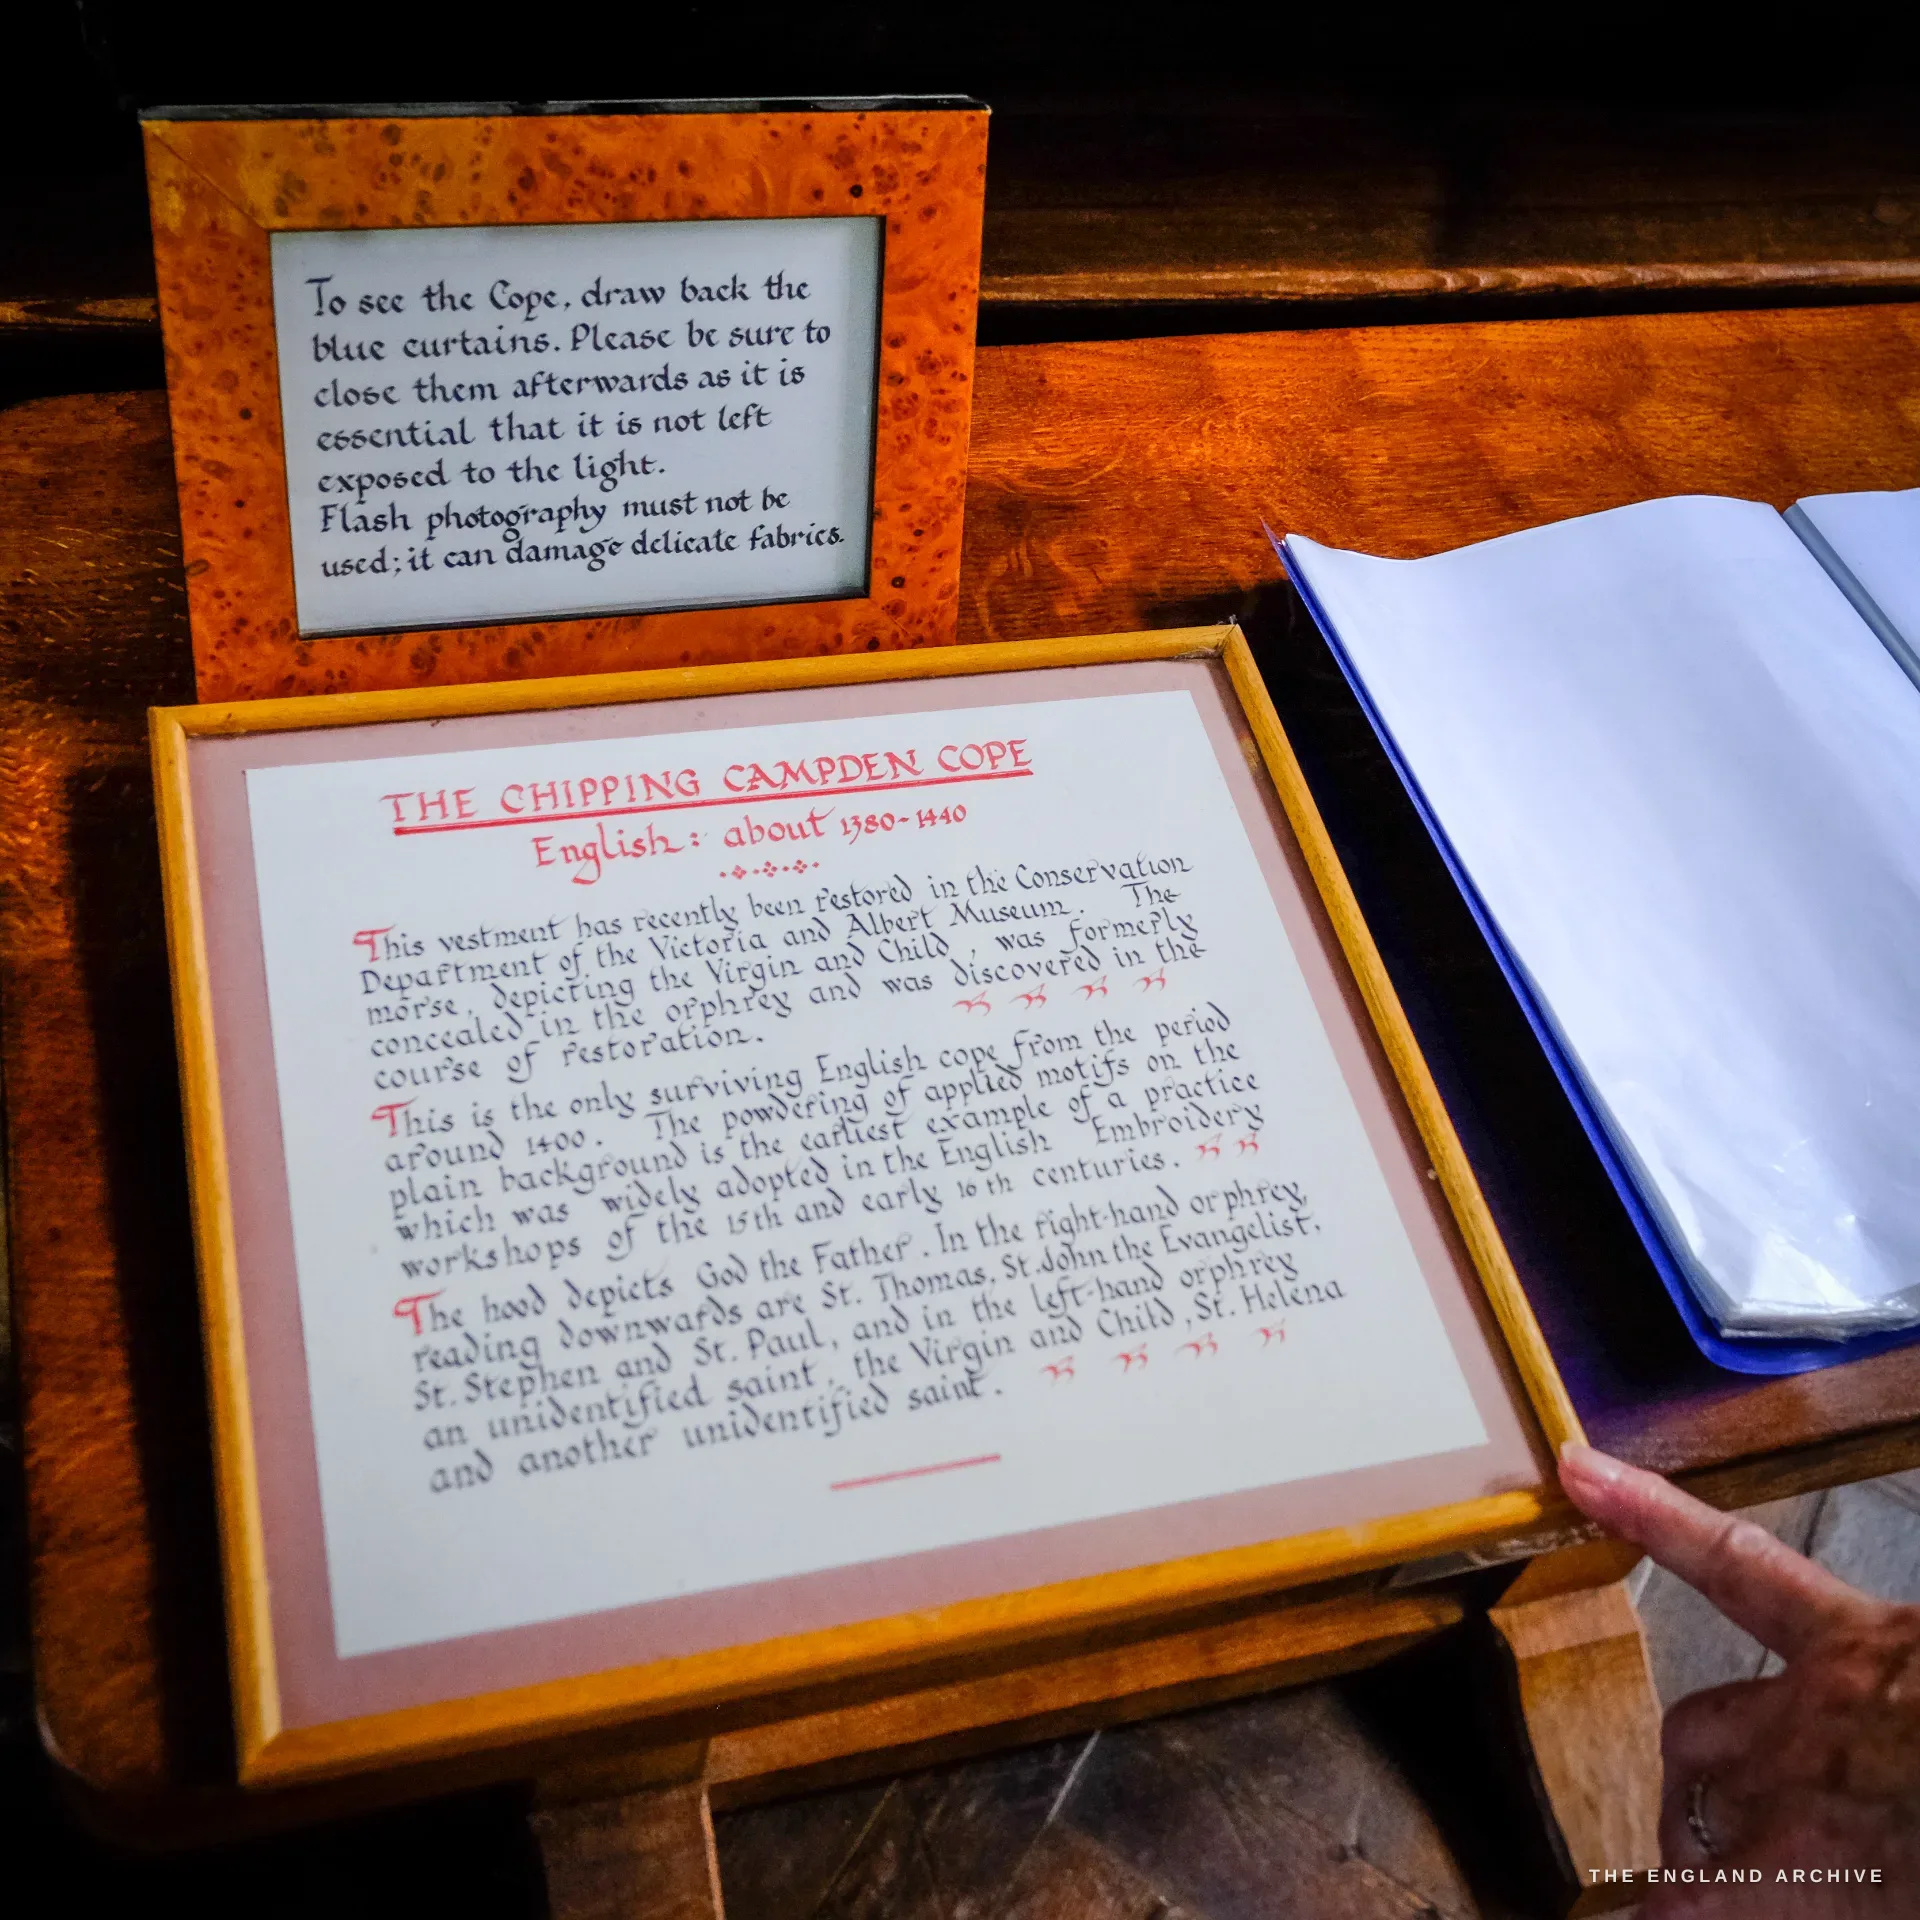 To see the Cope, draw back the
blue curtains. Please be sure to
close them afterwards as it is
essential that it is not left
exposed to the light.
Flash photography must not be
used; it can damage delicate fabrics.
THE CHIPPING CAMPDEN COPE
English: about 1380-1440
This vestment has recently been restored in the Conservation
Department of the Victoria and Albert Museum. The
morse, depicting the Virgin and Child, was formerly
concealed in the orphrey and was discovered in the
course of restoration.
This is the only surviving English cope from the period
around 1400. The powdering of applied motifs on the
plain background is the earliest example of a practice
which was widely adopted in the English Embroidery
workshops of the 15th and early 16th centuries.
The hood depicts God the Father. In the right-hand orphrey,
reading downwards are St. Thomas, St. John the Evangelist,
St. Stephen and St. Paul, and in the left-hand orphrey
an unidentified saint, the Virgin and Child, St. Helena
and another unidentified saint.
THE ENGLAND ARCHIVE